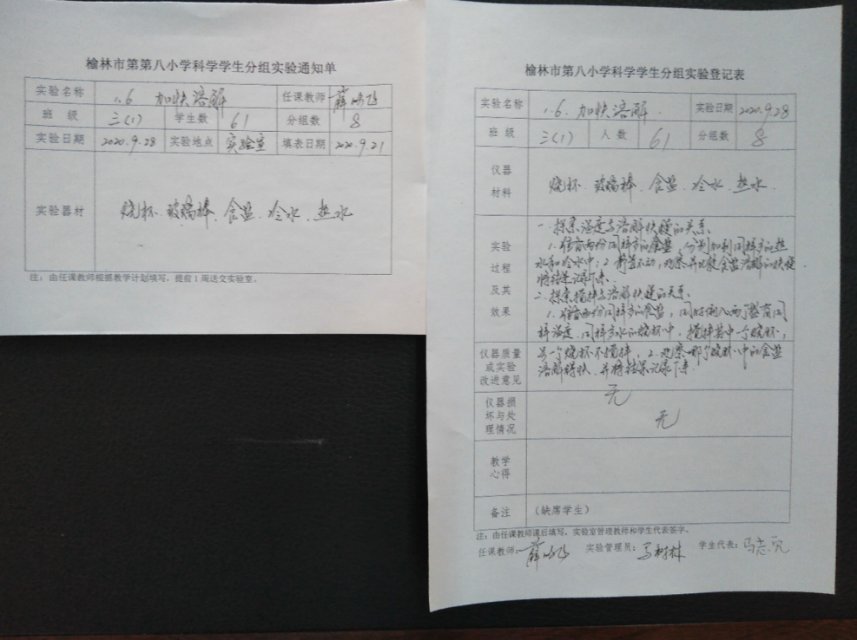 榆林市第第八小学科学学生分组实验通知单
实验名称 1.6 加快溶解 任课教师
班 级 三(1) 学生数 61 分组数 8
实验日期 2020.9.28 实验地点 实验室 填表日期 2020.9.21
实验器材 烧杯.玻璃棒.食盐.冷水.热水
注:由任课教师根据教学计划填写,提前1周送交实验室。
榆林市第八小学科学学生分组实验登记表
实验名称 1.6.加快溶解. 实验日期 2020.9.28
班 级 三(1) 人 数 61 分组数 8
仪器
材料
烧杯.玻璃棒.食盐.冷水.热水.
实验
过程
及其
效果
一.探索温度与溶解快慢的关系.
1.准备两份同样多的食盐,分别加到同样多的热
水和冷水中,2.静置不动,观察并比较食盐溶解的快慢
将结果记录下来.
二.探索搅拌与溶解快慢的关系.
1.准备两份同样多的食盐,同时倒入两个盛有同
样温度.同样多水的烧杯中.搅拌其中一个烧杯,
另一个烧杯不搅拌,2.观察哪个烧杯中的食盐
溶解得快.并将结果记录下来.
仪器质量
或实验
改进意见
无
仪器损
坏与处
理情况
无
教学
心得
备注 (缺席学生)
注:由任课教师课后填写,实验室管理教师和学生代表签字。
任课教师: 实验管理员: 学生代表: